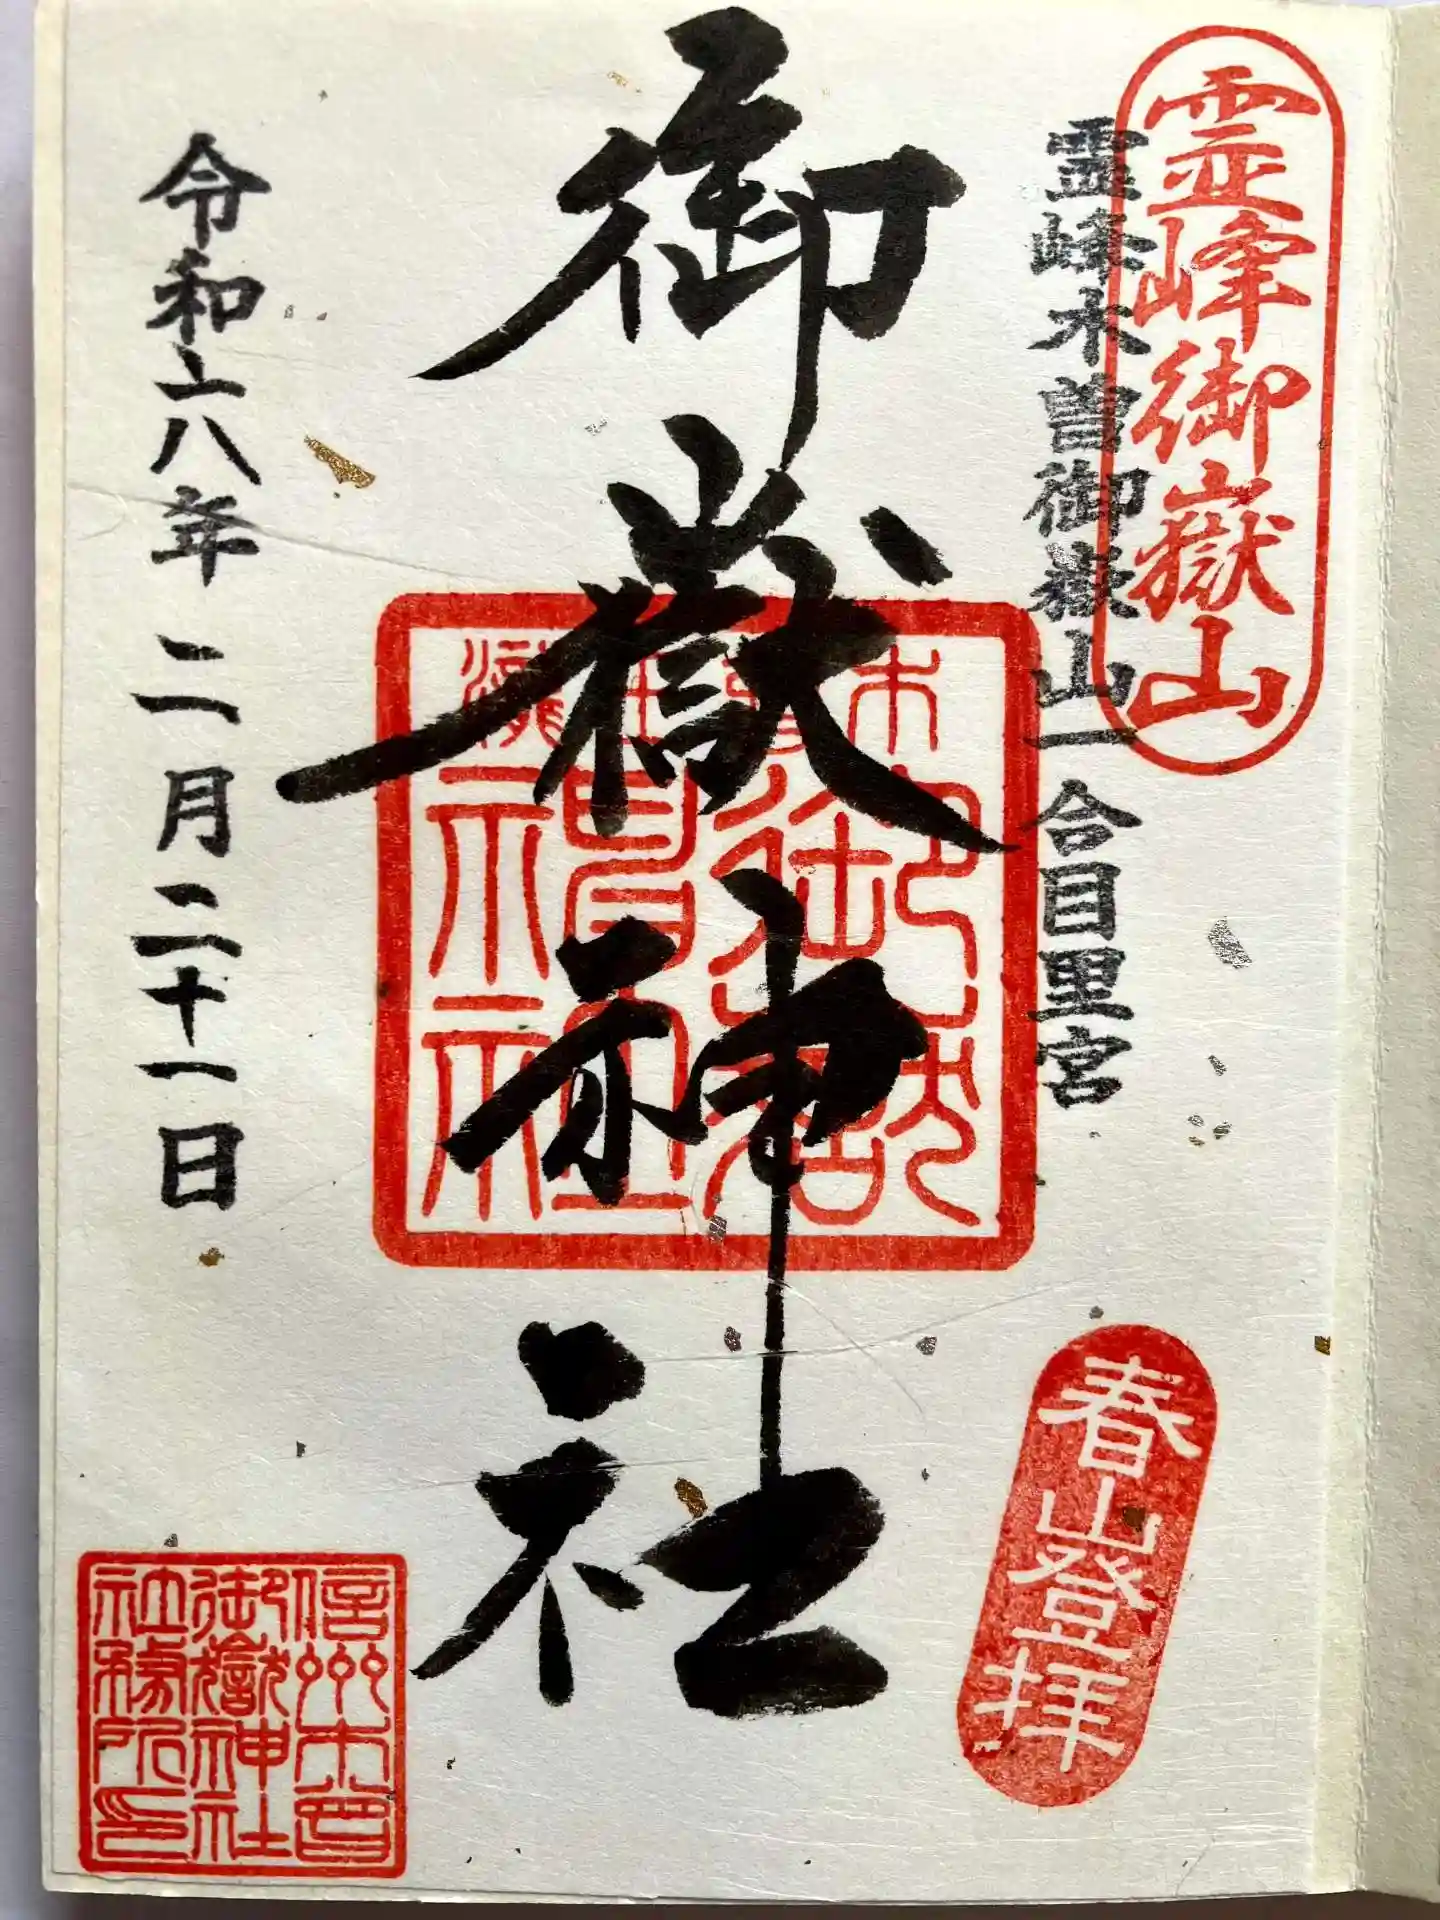 霊峰御嶽山
霊峰木曽御嶽山一合目里宮
春山登拝
御嶽神社
令和八年 二月二十一日
信州木曽
御嶽神社
社務所印